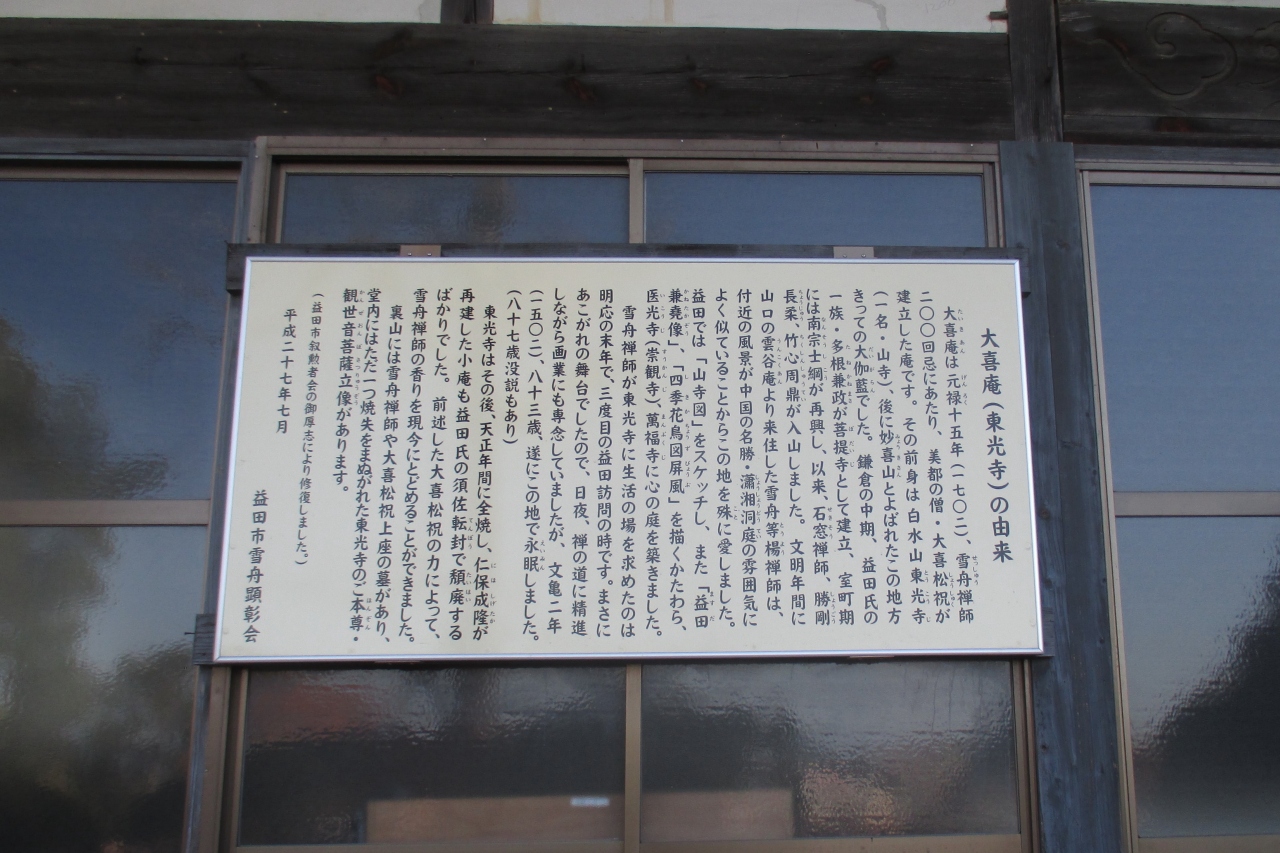 大喜庵（東光寺）の由来
大喜庵は元禄十五年（一七〇二）、雪舟禅師
二〇〇回忌にあたり、美都の僧・大喜松祝が
建立した庵です。その前身は白水山東光寺
（一名・山寺）、後に妙喜山とよばれたこの地方
きっての大伽藍でした。鎌倉の中期、益田氏の
一族・多根兼政が菩提寺として建立、室町期
には南宗士綱が再興し、以来、石窓禅師、勝剛
長柔、竹心周鼎が入山しました。文明年間に
山口の雲谷庵より来住した雪舟等楊禅師は、
付近の風景が中国の名勝・瀟湘洞庭の雰囲気に
よく似ていることからこの地を殊に愛しました。
益田では「山寺図」をスケッチし、また「益田
兼堯像」、「四季花鳥図屏風」を描くかたわら、
医光寺（崇観寺）、萬福寺に心の庭を築きました。
雪舟禅師が東光寺に生活の場を求めたのは
明応の末年で、三度目の益田訪問の時です。まさに
あこがれの舞台でしたので、日夜、禅の道に精進
しながら画業にも専念していましたが、文亀二年
（一五〇二）、八十三歳、遂にこの地で永眠しました。
（八十七歳没説もあり）
東光寺はその後、天正年間に全焼し、仁保成隆が
再建した小庵も益田氏の須佐転封で頽廃する
ばかりでした。前述した大喜松祝の力によって、
雪舟禅師の香りを現今にとどめることができました。
裏山には雪舟禅師や大喜松祝上座の墓があり、
堂内にはただ一つ焼失をまぬがれた東光寺のご本尊・
観世音菩薩立像があります。
（益田市叙勲者会の御厚志により修復しました。）
平成二十七年七月
益田市雪舟顕彰会